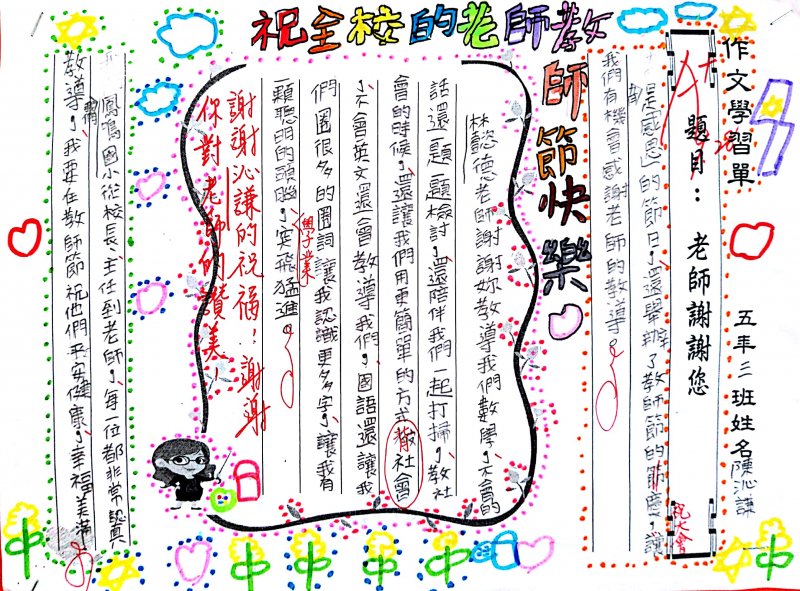 祝全校的老師教
師節快樂
作文學習單 五年三班姓名陳沁謙
題目：老師謝謝您
是「感恩」的節日，還舉辦了教師節的節慶，讓
我們有機會感謝老師的教導。
林懿德老師謝謝妳教導我們數學，不會的
話還一題一題檢討，還陪伴我們一起打掃，教社
會的時候，還讓我們用更簡單的方式教社會
，不會英文還會教導我們，國語還讓我
們圈很多的圈詞讓我認識更多字，讓我有
一顆聰明的頭腦，學業突飛猛進。
謝謝沁謙的祝福！謝謝
你對老師的讚美！
鳳鳴國小從校長、主任到老師，每一位都非常認真
教導我們，我要在教師節祝他們平安健康、幸福美滿。